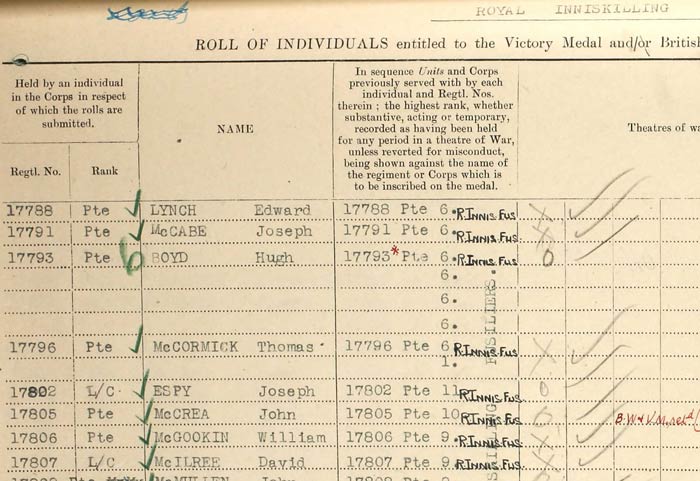 ROYAL INNISKILLING
ROLL OF INDIVIDUALS entitled to the Victory Medal and/or British
Held by an individual
in the Corps in respect
of which the rolls are
submitted.
Regtl. No. Rank
NAME
In sequence Units and Corps
previously served with by each
individual and Regtl. Nos.
therein ; the highest rank, whether
substantive, acting or temporary,
recorded as having been held
for any period in a theatre of War,
unless reverted for misconduct,
being shown against the name of
the regiment or Corps which is
to be inscribed on the medal.
Theatres of wa
17788 Pte LYNCH Edward 17788 Pte 6. R.INNIS.FUS
17791 Pte McCABE Joseph 17791 Pte 6. R.INNIS.FUS.
17793 Pte 6 BOYD Hugh 17793* Pte 6. R.INNIS.FUS O
6.
6.
6.
17796 Pte McCORMICK Thomas 17796 Pte 6 R.INNIS.FUS X
1.
17802 L/C. ESPY Joseph 17802 Pte 11 R.INNIS.FUS. O
17805 Pte McCREA John 17805 Pte 10 R.INNIS.FUS O
17806 Pte McGOOKIN William 17806 Pte 9. R.INNIS.FUS X
17807 L/C McILREE David 17807 Pte 9. R.INNIS.FUS X
McMULLEN John
FUSILIERS.